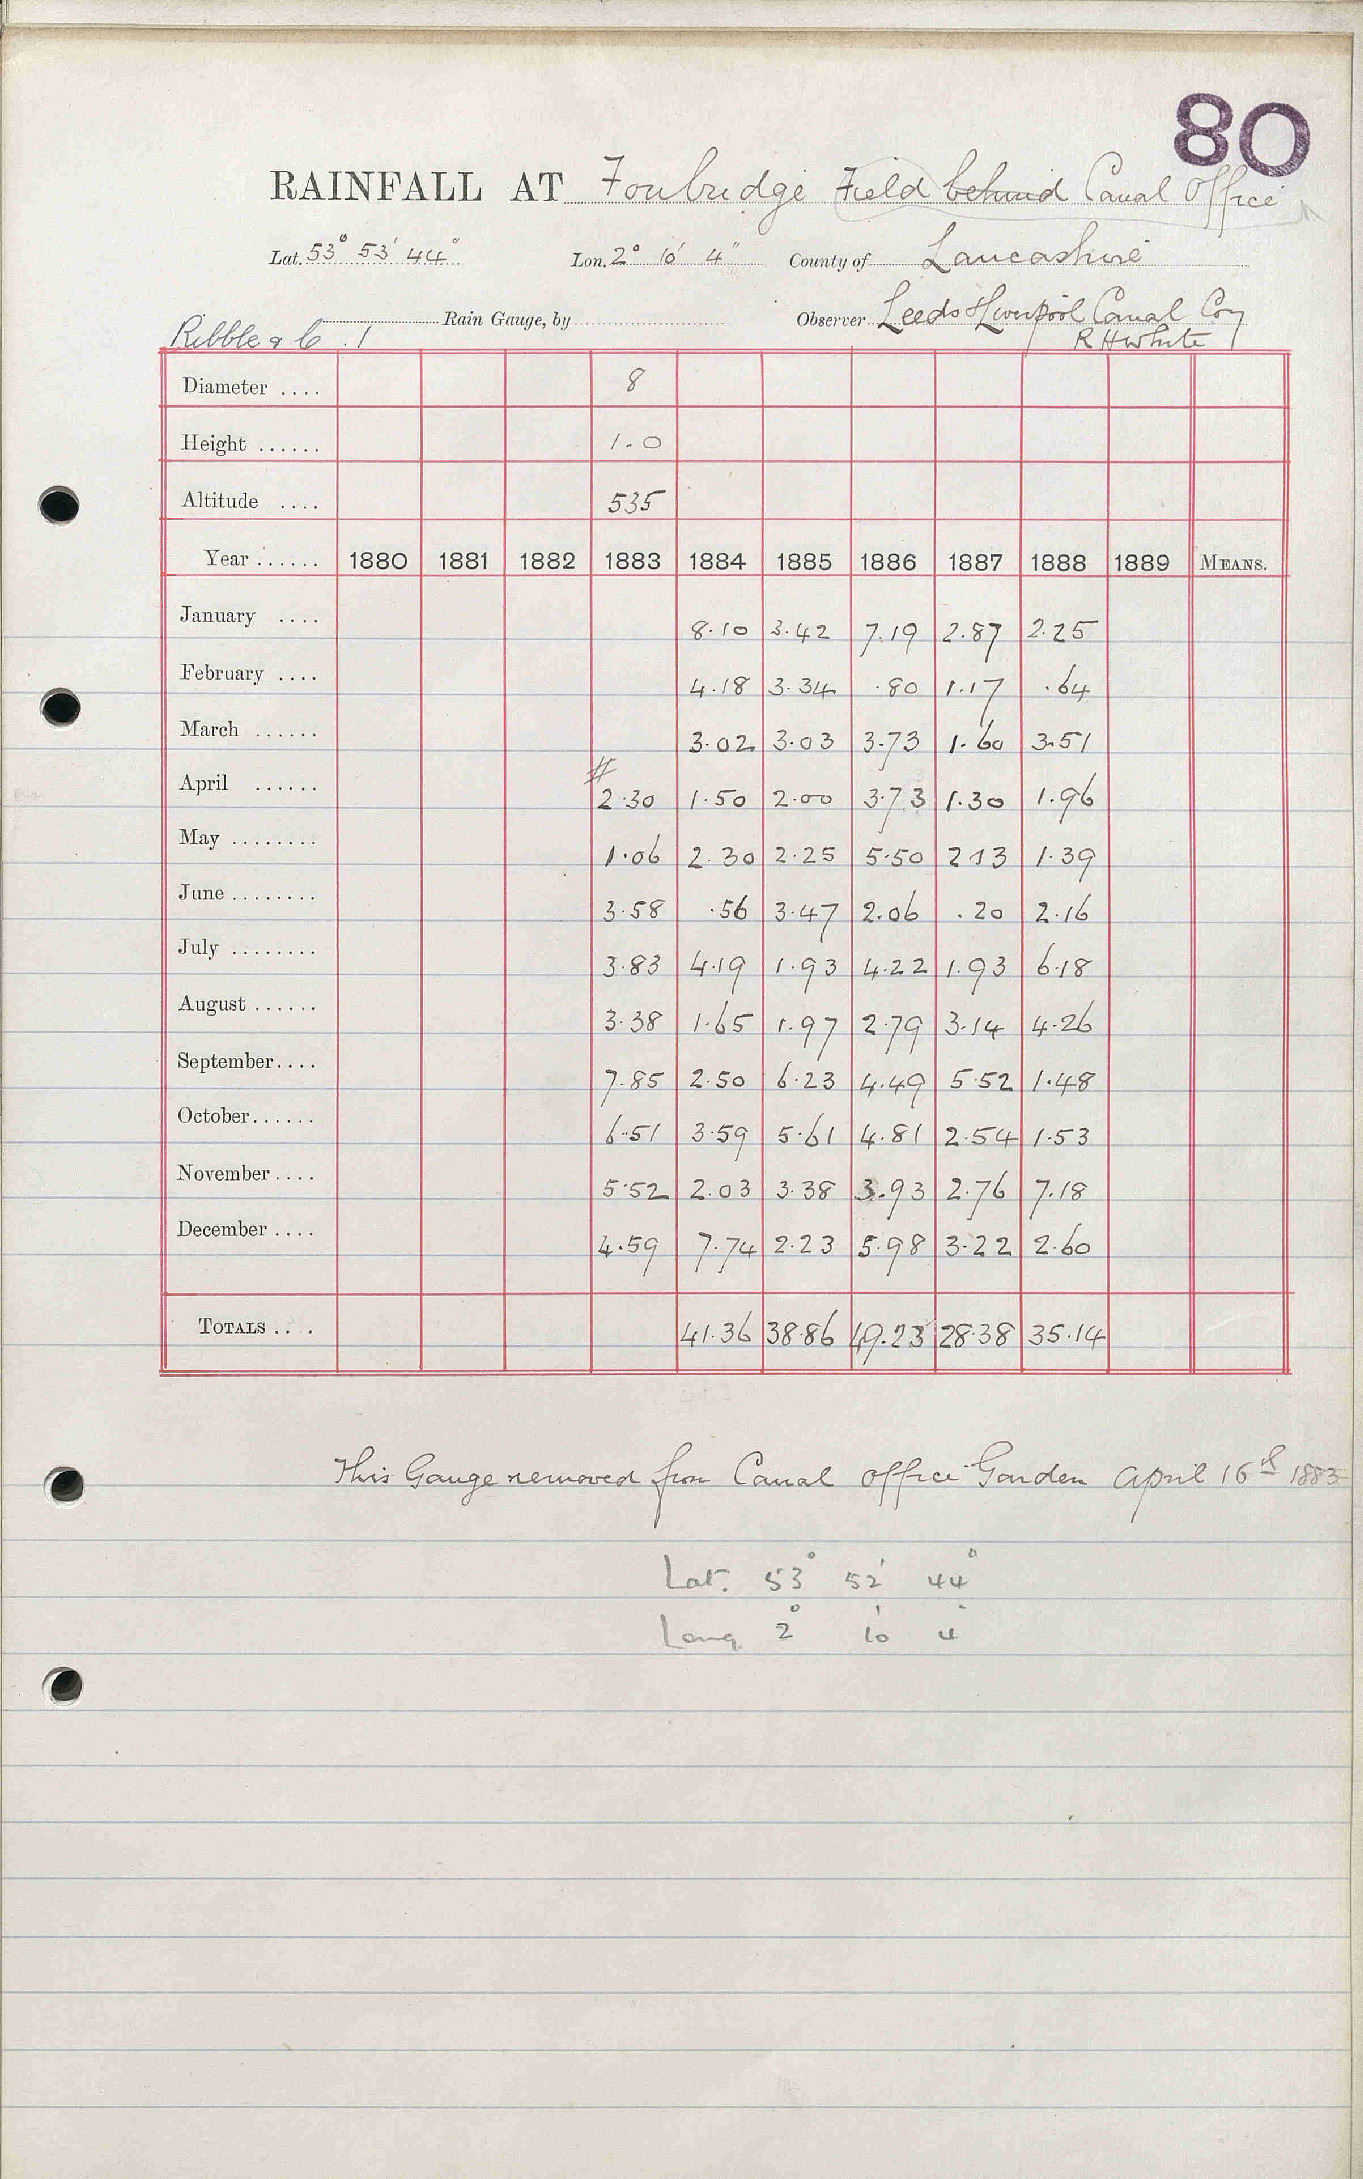 80
RAINFALL AT Foulbridge Field behind Canal Office
Lat. 53° 53' 44" Lon. 2° 10' 4" County of Lancashire
Rain Gauge, by Observer Leeds & Liverpool Canal Coy
Ribble &c. 1 R H White
Diameter .... 8
Height ...... 1.0
Altitude .... 535
Year ...... 1880 1881 1882 1883 1884 1885 1886 1887 1888 1889 MEANS.
January .... 8.10 3.42 7.19 2.87 2.25
February .... 4.18 3.34 .80 1.17 .64
March ...... 3.02 3.03 3.73 1.60 3.51
#
April ...... 2.30 1.50 2.00 3.73 1.30 1.96
May ........ 1.06 2.30 2.25 5.50 2.13 1.39
June ........ 3.58 .56 3.47 2.06 .20 2.16
July ........ 3.83 4.19 1.93 4.22 1.93 6.18
August ...... 3.38 1.65 1.97 2.79 3.14 4.26
September.... 7.85 2.50 6.23 4.49 5.52 1.48
October...... 6.51 3.59 5.61 4.81 2.54 1.53
November.... 5.52 2.03 3.38 3.93 2.76 7.18
December .... 4.59 7.74 2.23 5.98 3.22 2.60
TOTALS .... 41.36 38.86 49.23 28.38 35.14
This Gauge removed from Canal Office Garden April 16th 1883
Lat. 53° 52' 44"
Long. 2° 10' 4"